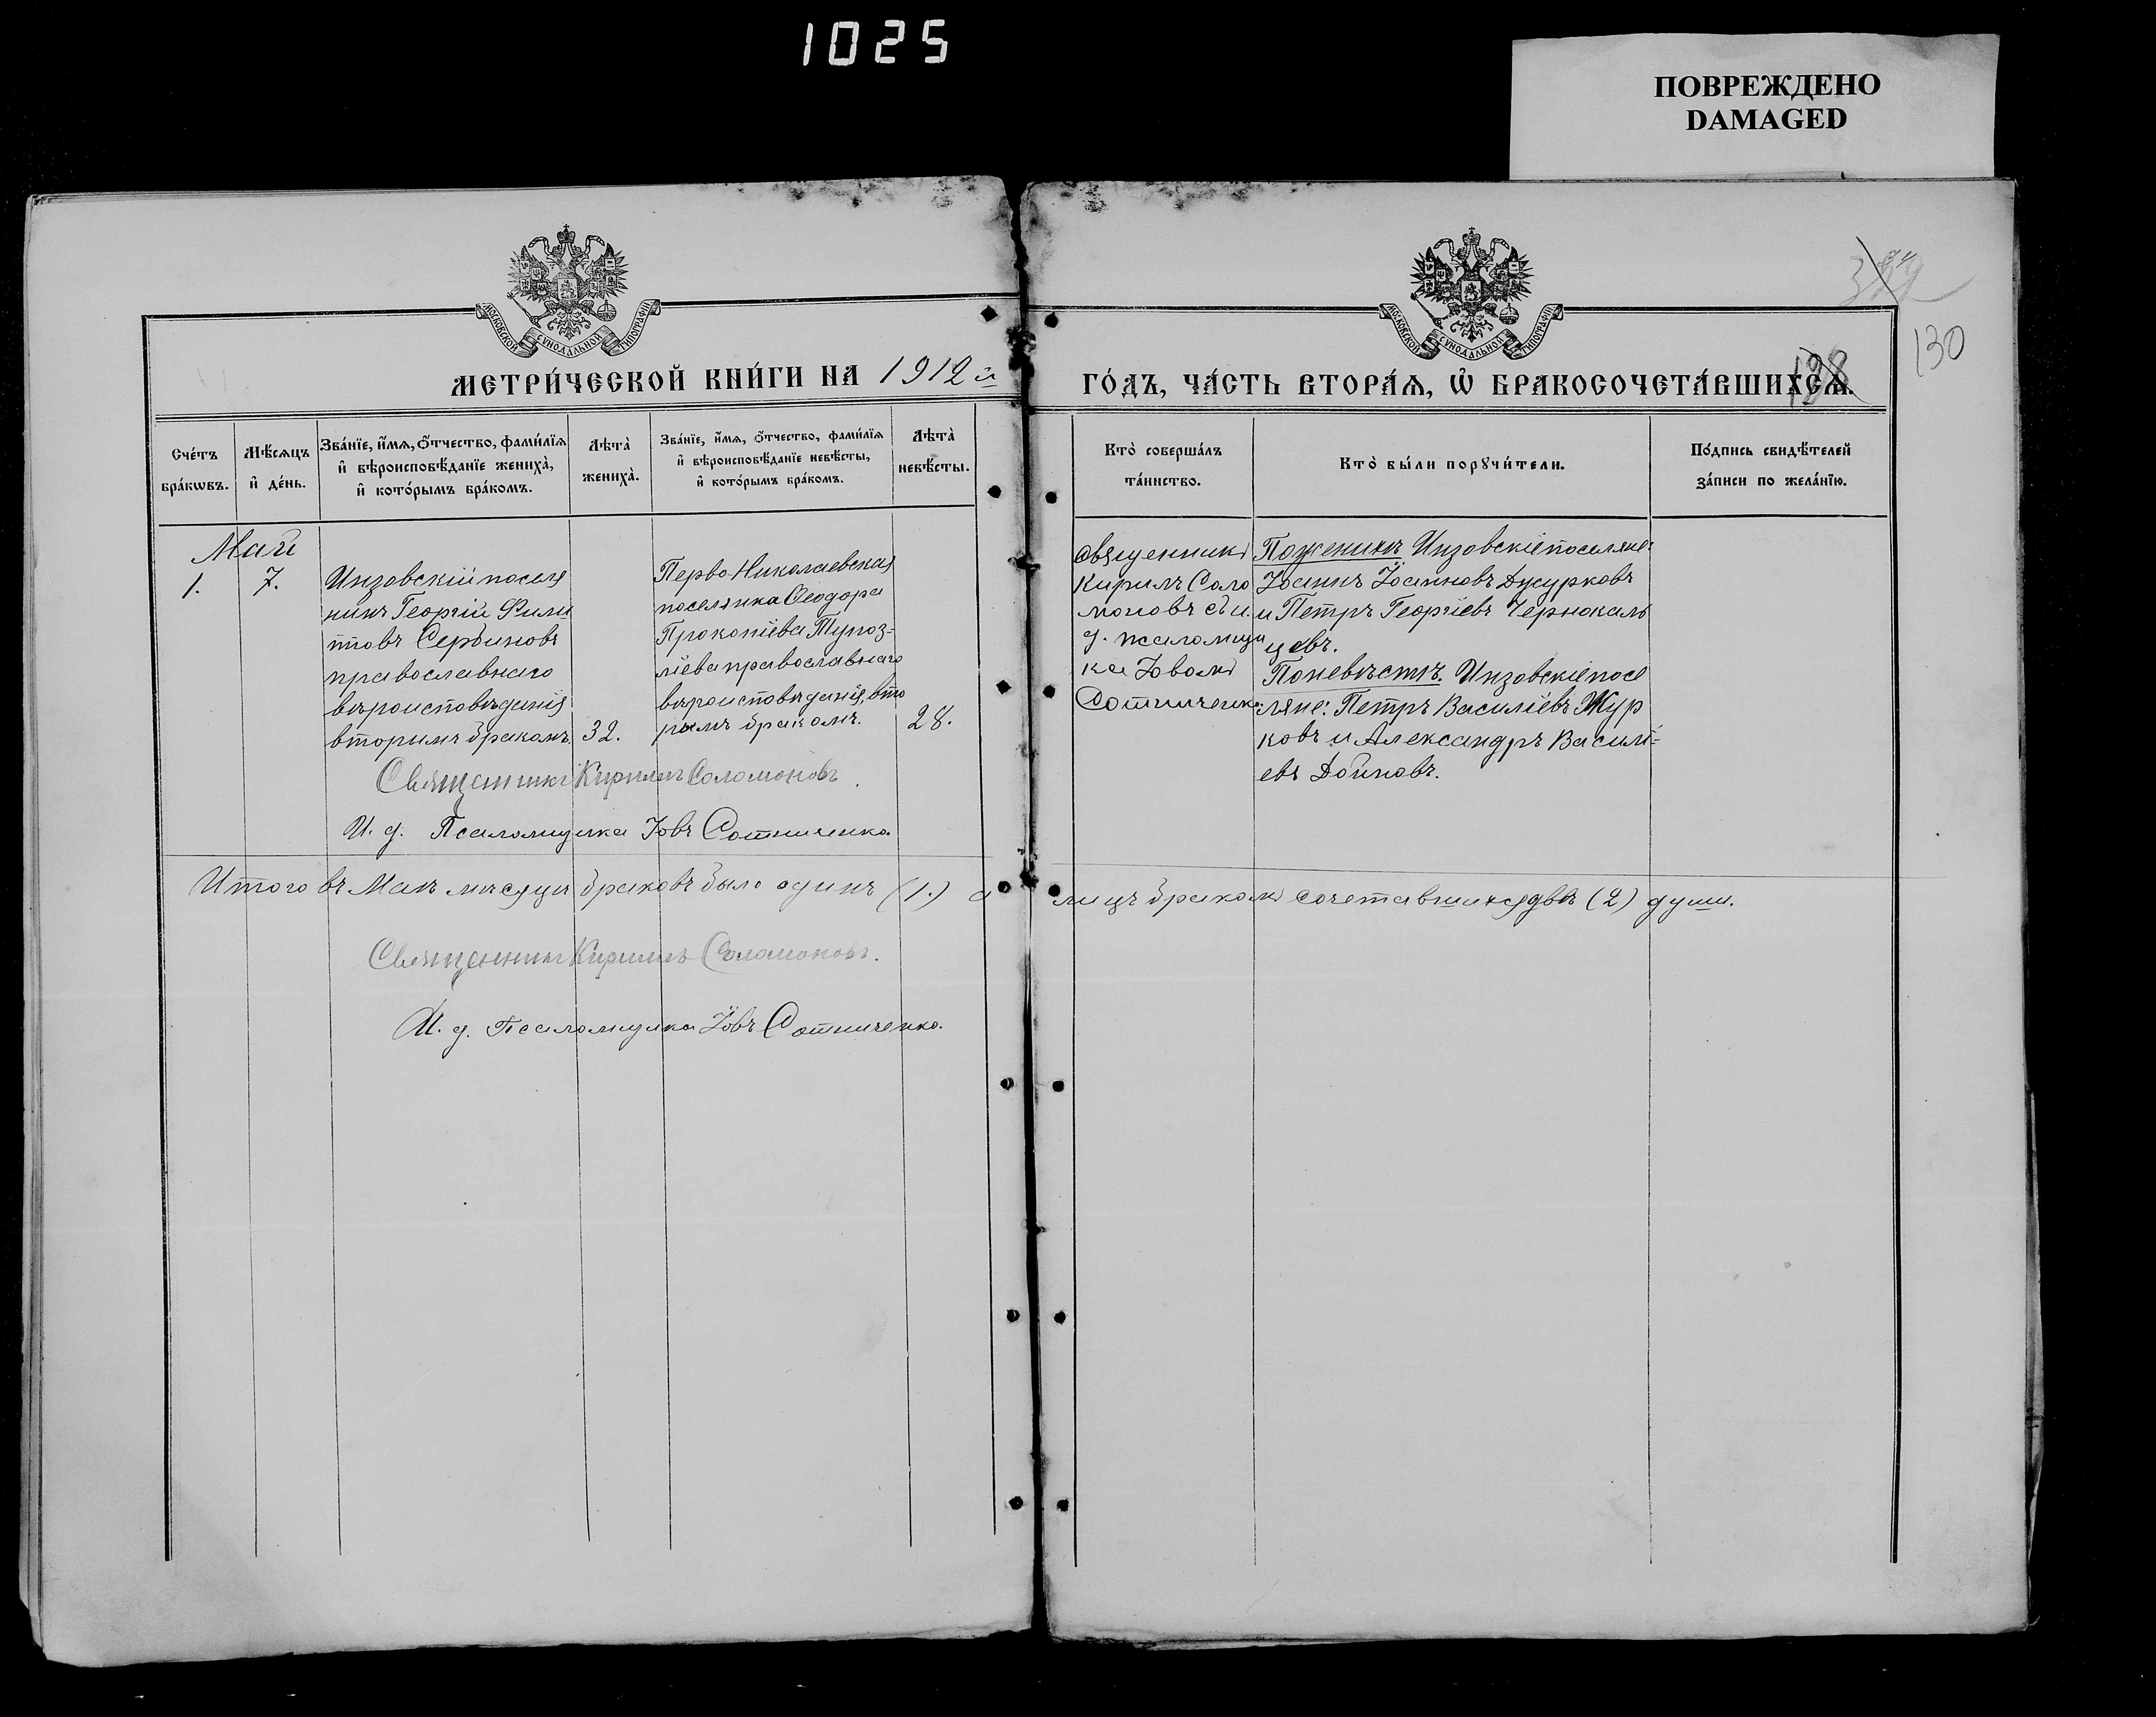 1025
ПОВРЕЖДЕНО
DAMAGED
МОСКОВСКОЙ СѴНОДАЛЬНОЙ ТИПОГРАФІИ
МОСКОВСКОЙ СѴНОДАЛЬНОЙ ТИПОГРАФІИ
130
128
МЕТРИ́ЧЕСКОЙ КНИ́ГИ НА 1912 й
ГО́ДЪ, ЧА́СТЬ ВТОРА́Ѧ, Ѡ҆ БРАКОСОЧЕТА́ВШИХСѦ.
Сче́тъ
бра́кѡвъ.
Мѣ́сѧцъ
и҆ де́нь.
Зва́нїе, и҆́мѧ, ѻ҆́тчество, фами́лїѧ
и҆ вѣроисповѣ́данїе жениха̀,
и҆ кото́рымъ бра́комъ.
Лѣта̀
жениха̀.
Зва́нїе, и҆́мѧ, ѻ҆́тчество, фами́лїѧ
и҆ вѣроисповѣ́данїе невѣ́сты,
и҆ кото́рымъ бра́комъ.
Лѣта̀
невѣ́сты.
Кто̀ соверша́лъ
та́инство.
Кто̀ бы́ли порꙋчи́тели.
По́дпись свидѣ́телей
за́писи по жела́нїю.
Май
1.
7.
Инзовскій поселя
нинъ Георгій Фили
повъ Сербиновъ
православнаго
вѣроисповѣданія
вторымъ бракомъ.
32.
Перво-Николаевская
поселянка Ѳеодора
Прокопіева Тупоз-
ліева православнаго
вѣроисповѣданія, вто
рымъ бракомъ.
28.
Священникъ
Кирилъ Соло
моновъ съ и.
д. псаломщи
ка Іовомъ
Сотниченко
По женихѣ Инзовскіе поселяне:
Іоаннъ Іоанновъ Джурковъ
и Петръ Георгіевъ Чернокаль
цевъ.
По невѣстѣ. Инзовскіе посе
ляне: Петръ Василіевъ Жур
ковъ и Александръ Василі-
евъ Дойновъ.
Священникъ Кириллъ Соломоновъ.
И. д. Псаломщика Іовъ Сотниченко.
Итого въ Маѣ мѣсяцѣ браковъ было одинъ (1.) а лицъ бракомъ сочетавшихся двѣ (2) души.
Священникъ Кириллъ Соломоновъ.
И. д. Псаломщика Іовъ Сотниченко.